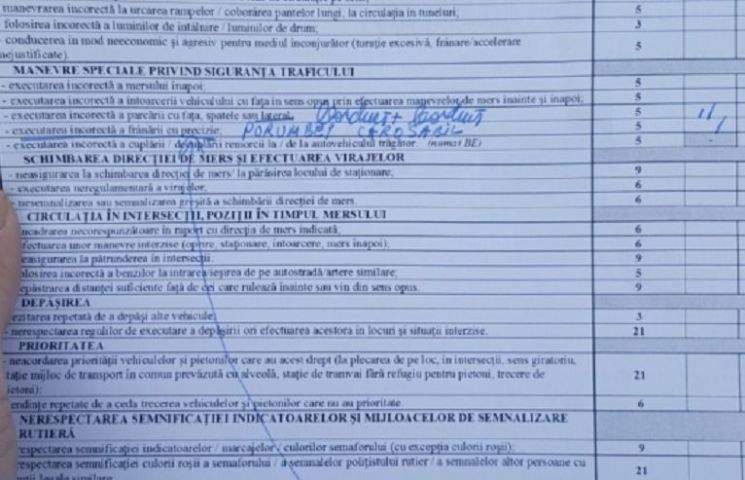 - manevrarea incorectă la urcarea rampelor / coborârea pantelor lungi, la circulația în tuneluri;
5
folosirea incorectă a luminilor de întâlnire / luminilor de drum;
3
- conducerea în mod neeconomic și agresiv pentru mediul înconjurător (turație excesivă, frânare/accelerare
nejustificate).
5
MANEVRE SPECIALE PRIVIND SIGURANȚA TRAFICULUI
- executarea incorectă a mersului înapoi;
5
- executarea incorectă a întoarcerii vehiculului cu fața în sens opus prin efectuarea manevrelor de mers înainte și înapoi;
5
- executarea incorectă a parcării cu fața, spatele sau lateral;
5
- executarea incorectă a frânării cu precizie;
PORUMBEI CAROSABIL
5
- executarea incorectă a cuplării / decuplării remorcii la / de la autovehiculul trăgător. (numai BE)
5
SCHIMBAREA DIRECȚIEI DE MERS ȘI EFECTUAREA VIRAJELOR
- neasigurarea la schimbarea direcției de mers/ la părăsirea locului de staționare;
9
- executarea neregulamentară a virajelor;
6
- nesemnalizarea sau semnalizarea greșită a schimbării direcției de mers.
6
CIRCULAȚIA ÎN INTERSECȚII, POZIȚII ÎN TIMPUL MERSULUI
ncadrarea necorespunzătoare în raport cu direcția de mers indicată;
6
fectuarea unor manevre interzise (oprire, staționare, întoarcere, mers înapoi);
6
easigurarea la pătrunderea în intersecții;
9
olosirea incorectă a benzilor la intrarea/ieșirea de pe autostradă/artere similare;
5
epăstrarea distanței suficiente față de cei care rulează înainte sau vin din sens opus.
9
DEPĂȘIREA
ezitarea repetată de a depăși alte vehicule;
3
- nerespectarea regulilor de executare a depășirii ori efectuarea acestora în locuri și situații interzise.
21
PRIORITATEA
- neacordarea priorității vehiculelor și pietonilor care au acest drept (la plecarea de pe loc, în intersecții, sens giratoriu,
tație mijloc de transport în comun prevăzută cu alveolă, stație de tramvai fără refugiu pentru pietoni, trecere de
ietoni);
21
endințe repetate de a ceda trecerea vehiculelor și pietonilor care nu au prioritate.
6
NERESPECTAREA SEMNIFICAȚIEI INDICATOARELOR ȘI MIJLOACELOR DE SEMNALIZARE
RUTIERĂ
espectarea semnificației indicatoarelor / marcajelor / culorilor semaforului (cu excepția culorii roșii);
9
espectarea semnificației culorii roșii a semaforului / a semnalelor polițistului rutier / a semnalelor altor persoane cu
21